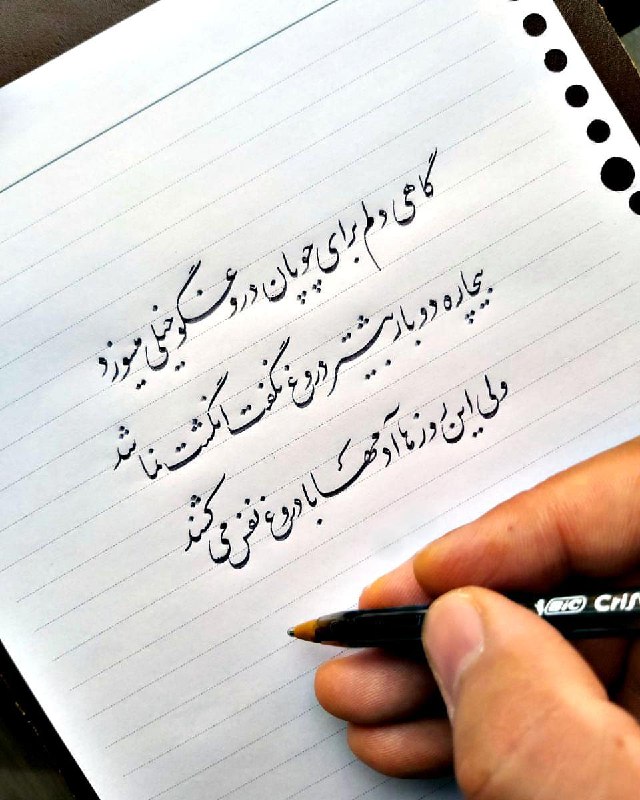 گاهی دلم برای چوپان دروغگو خیلی میسوزد
بیچاره دو بار بیشتر دروغ نگفت انگشت نما شد
ولی این روزها آدمها با دروغ نفس می کشند
BIC Cris